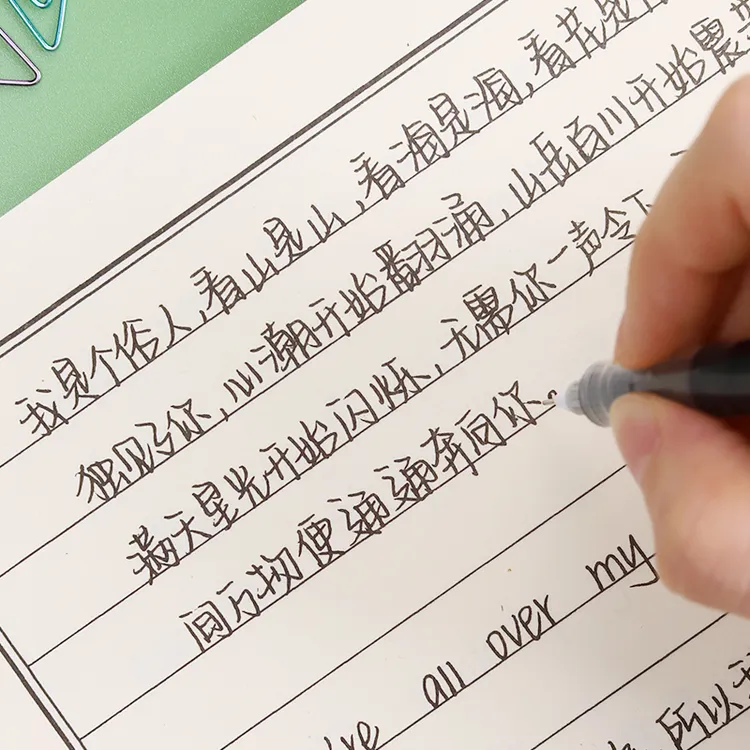 我是个俗人，看山是山，看海是海，看花是
独见了你，心潮开始翻涌，山岳百川开始震
满天星光开始闪烁，无需你一声令下
间万物便通通奔向你。
all over my
所以